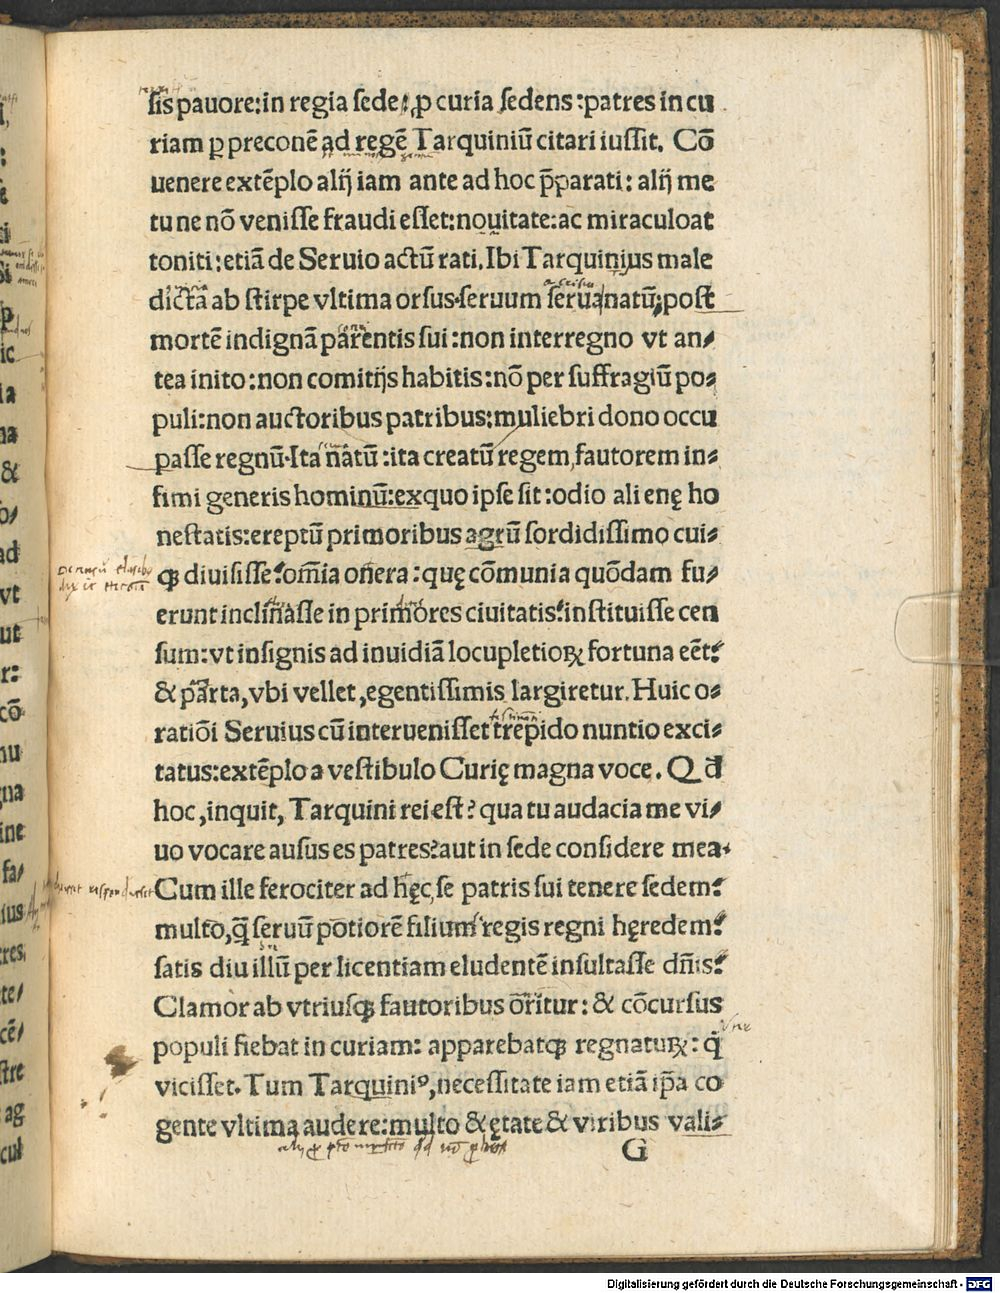 sis pauore: in regia sede: ꝓ curia sedens: patres in cu
riam ꝑ preconē ad regē Tarquiniū citari iussit. Cō
uenere extēplo alij iam ante ad hoc p̄parati: alij me
tu ne nō venisse fraudi esset: nouitate: ac miraculo at
toniti: etiā de Seruio actū rati. Ibi Tarquinius male
dicta ab stirpe vltima orsus. seruum serua natū; post
mortē indignā parentis sui: non interregno vt an⸗
tea inito: non comitijs habitis: nō per suffragiū po⸗
puli: non auctoribus patribus: muliebri dono occu
passe regnū. Ita natū: ita creatū regem, fautorem in⸗
fimi generis hominū: ex quo ipse sit: odio alienę ho
nestatis: ereptū primoribus agrū sordidissimo cui⸗
qꝫ diuisisse: om̄ia onera: quę cōmunia quōdam fu⸗
erunt inclinasse in primores ciuitatis: instituisse cen
sum: vt insignis ad inuidiā locupletioꝝ fortuna eēt:
& parta, vbi vellet, egentissimis largiretur. Huic o⸗
ratiōi Seruius cū interuenisset trepido nuntio exci⸗
tatus: extēplo a vestibulo Curię magna voce. Qd̄
hoc, inquit, Tarquini rei est? qua tu audacia me vi⸗
uo vocare ausus es patres? aut in sede considere mea.
Cum ille ferociter ad hęc, se patris sui tenere sedem:
multo, q̄ seruū potiorē filium regis regni hęredem:
satis diu illū per licentiam eludentē insultasse dn̄is:
Clamor ab vtriusqꝫ fautoribus oritur: & cōcursus
populi fiebat in curiam: apparebatqꝫ regnaturꝫ: q̇
vicisset. Tum Tarquiniꝰ, necessitate iam etiā ip̄a co
gente vltima audere: multo & ętate & viribus vali⸗
G
Digitalisierung gefördert durch die Deutsche Forschungsgemeinschaft - DFG